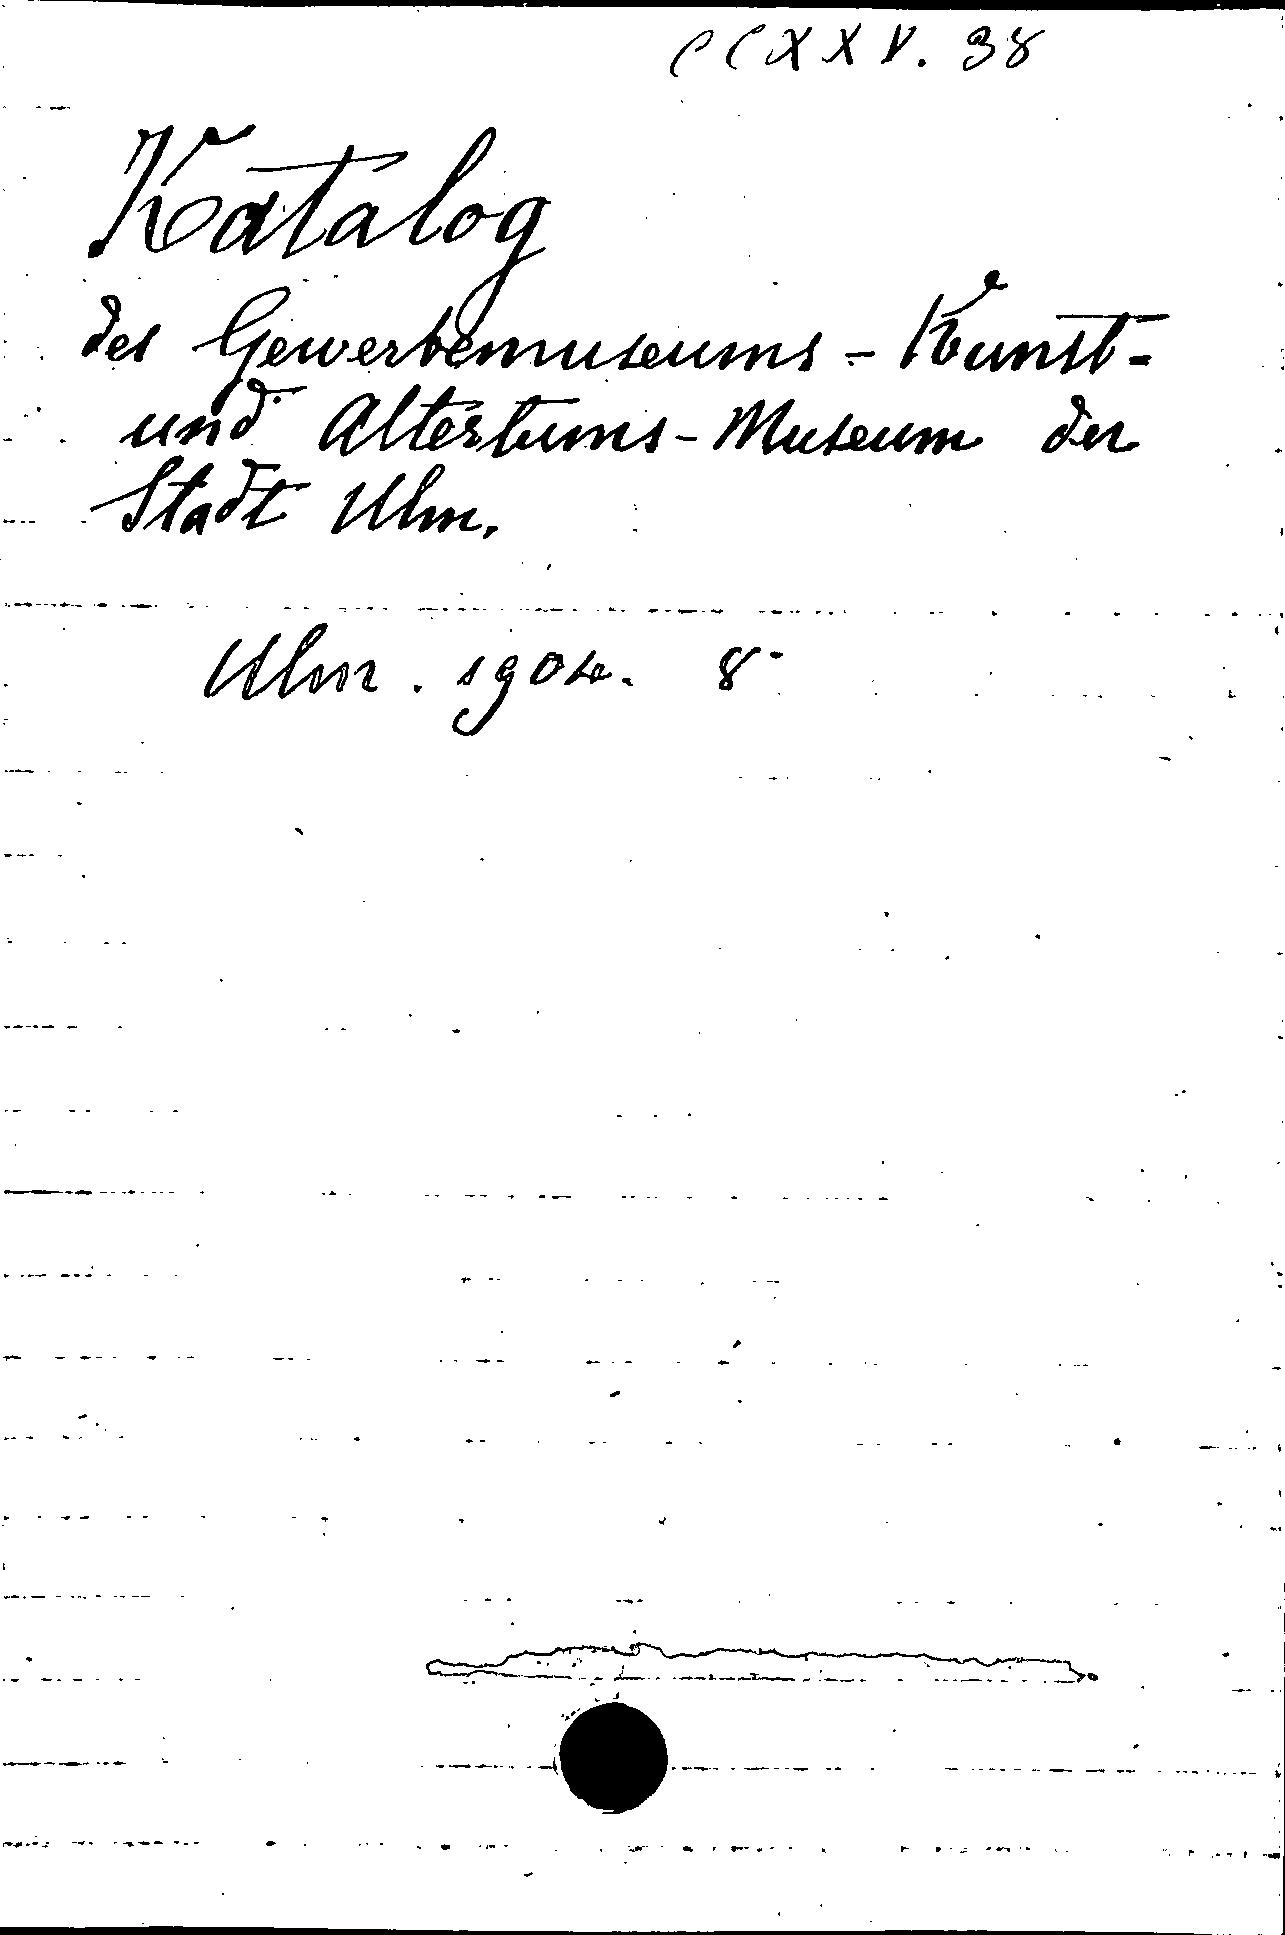 CCXXV. 38
Katalog
des Gewerbemuseums - Kunst-
und Altertums-Museum der
Stadt Ulm.
Ulm. 1904. 8°